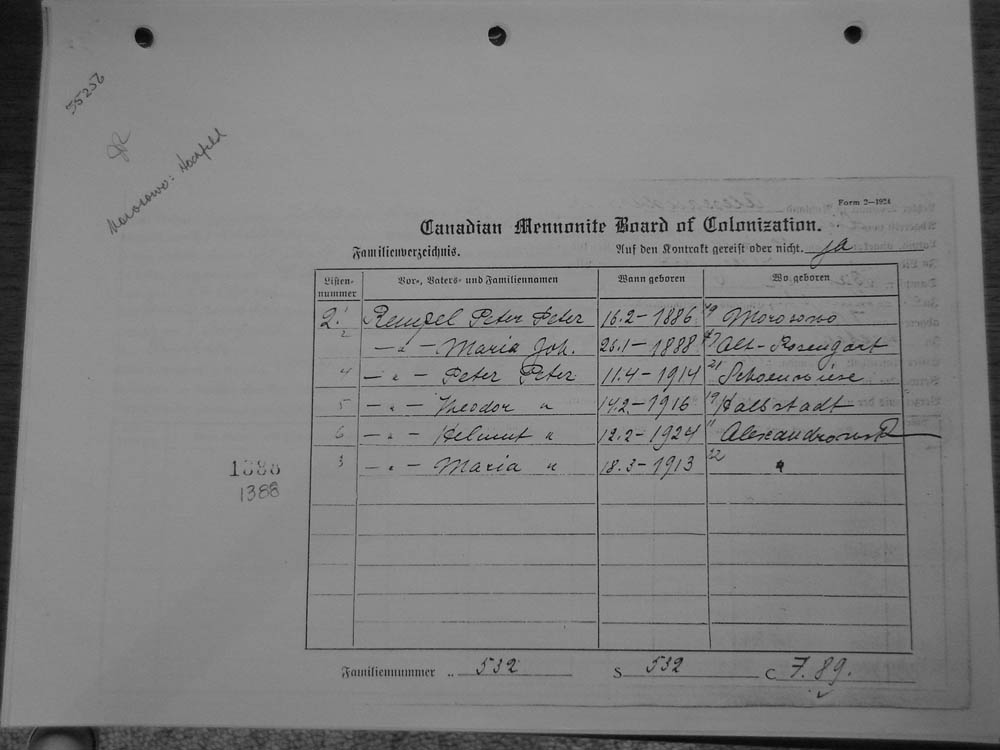 55256
Morosowo: Hochfeld
Form 2—1924
Canadian Mennonite Board of Colonization.
Familienverzeichnis. Auf den Kontrakt gereist oder nicht. ja
Listen-nummer Vor-, Vaters- und Familiennamen Wann geboren Wo geboren
2. 1 Rempel Peter Peter 16.2-1886 49 Morosowo
2 — " — Maria Joh. 26.1-1888 Alt-Rosengart
4 — " — Peter Peter 11.4-1914 21 Schoenwiese
5 — " — Theodor " 14.2-1916 19 Halbstadt
6 — " — Helmut " 12.2-1924 11 Alexandrowsk
3 — " — Maria " 18.3-1913 22 "
1388
1388
Familiennummer .. 532 S 532 C 7.89.